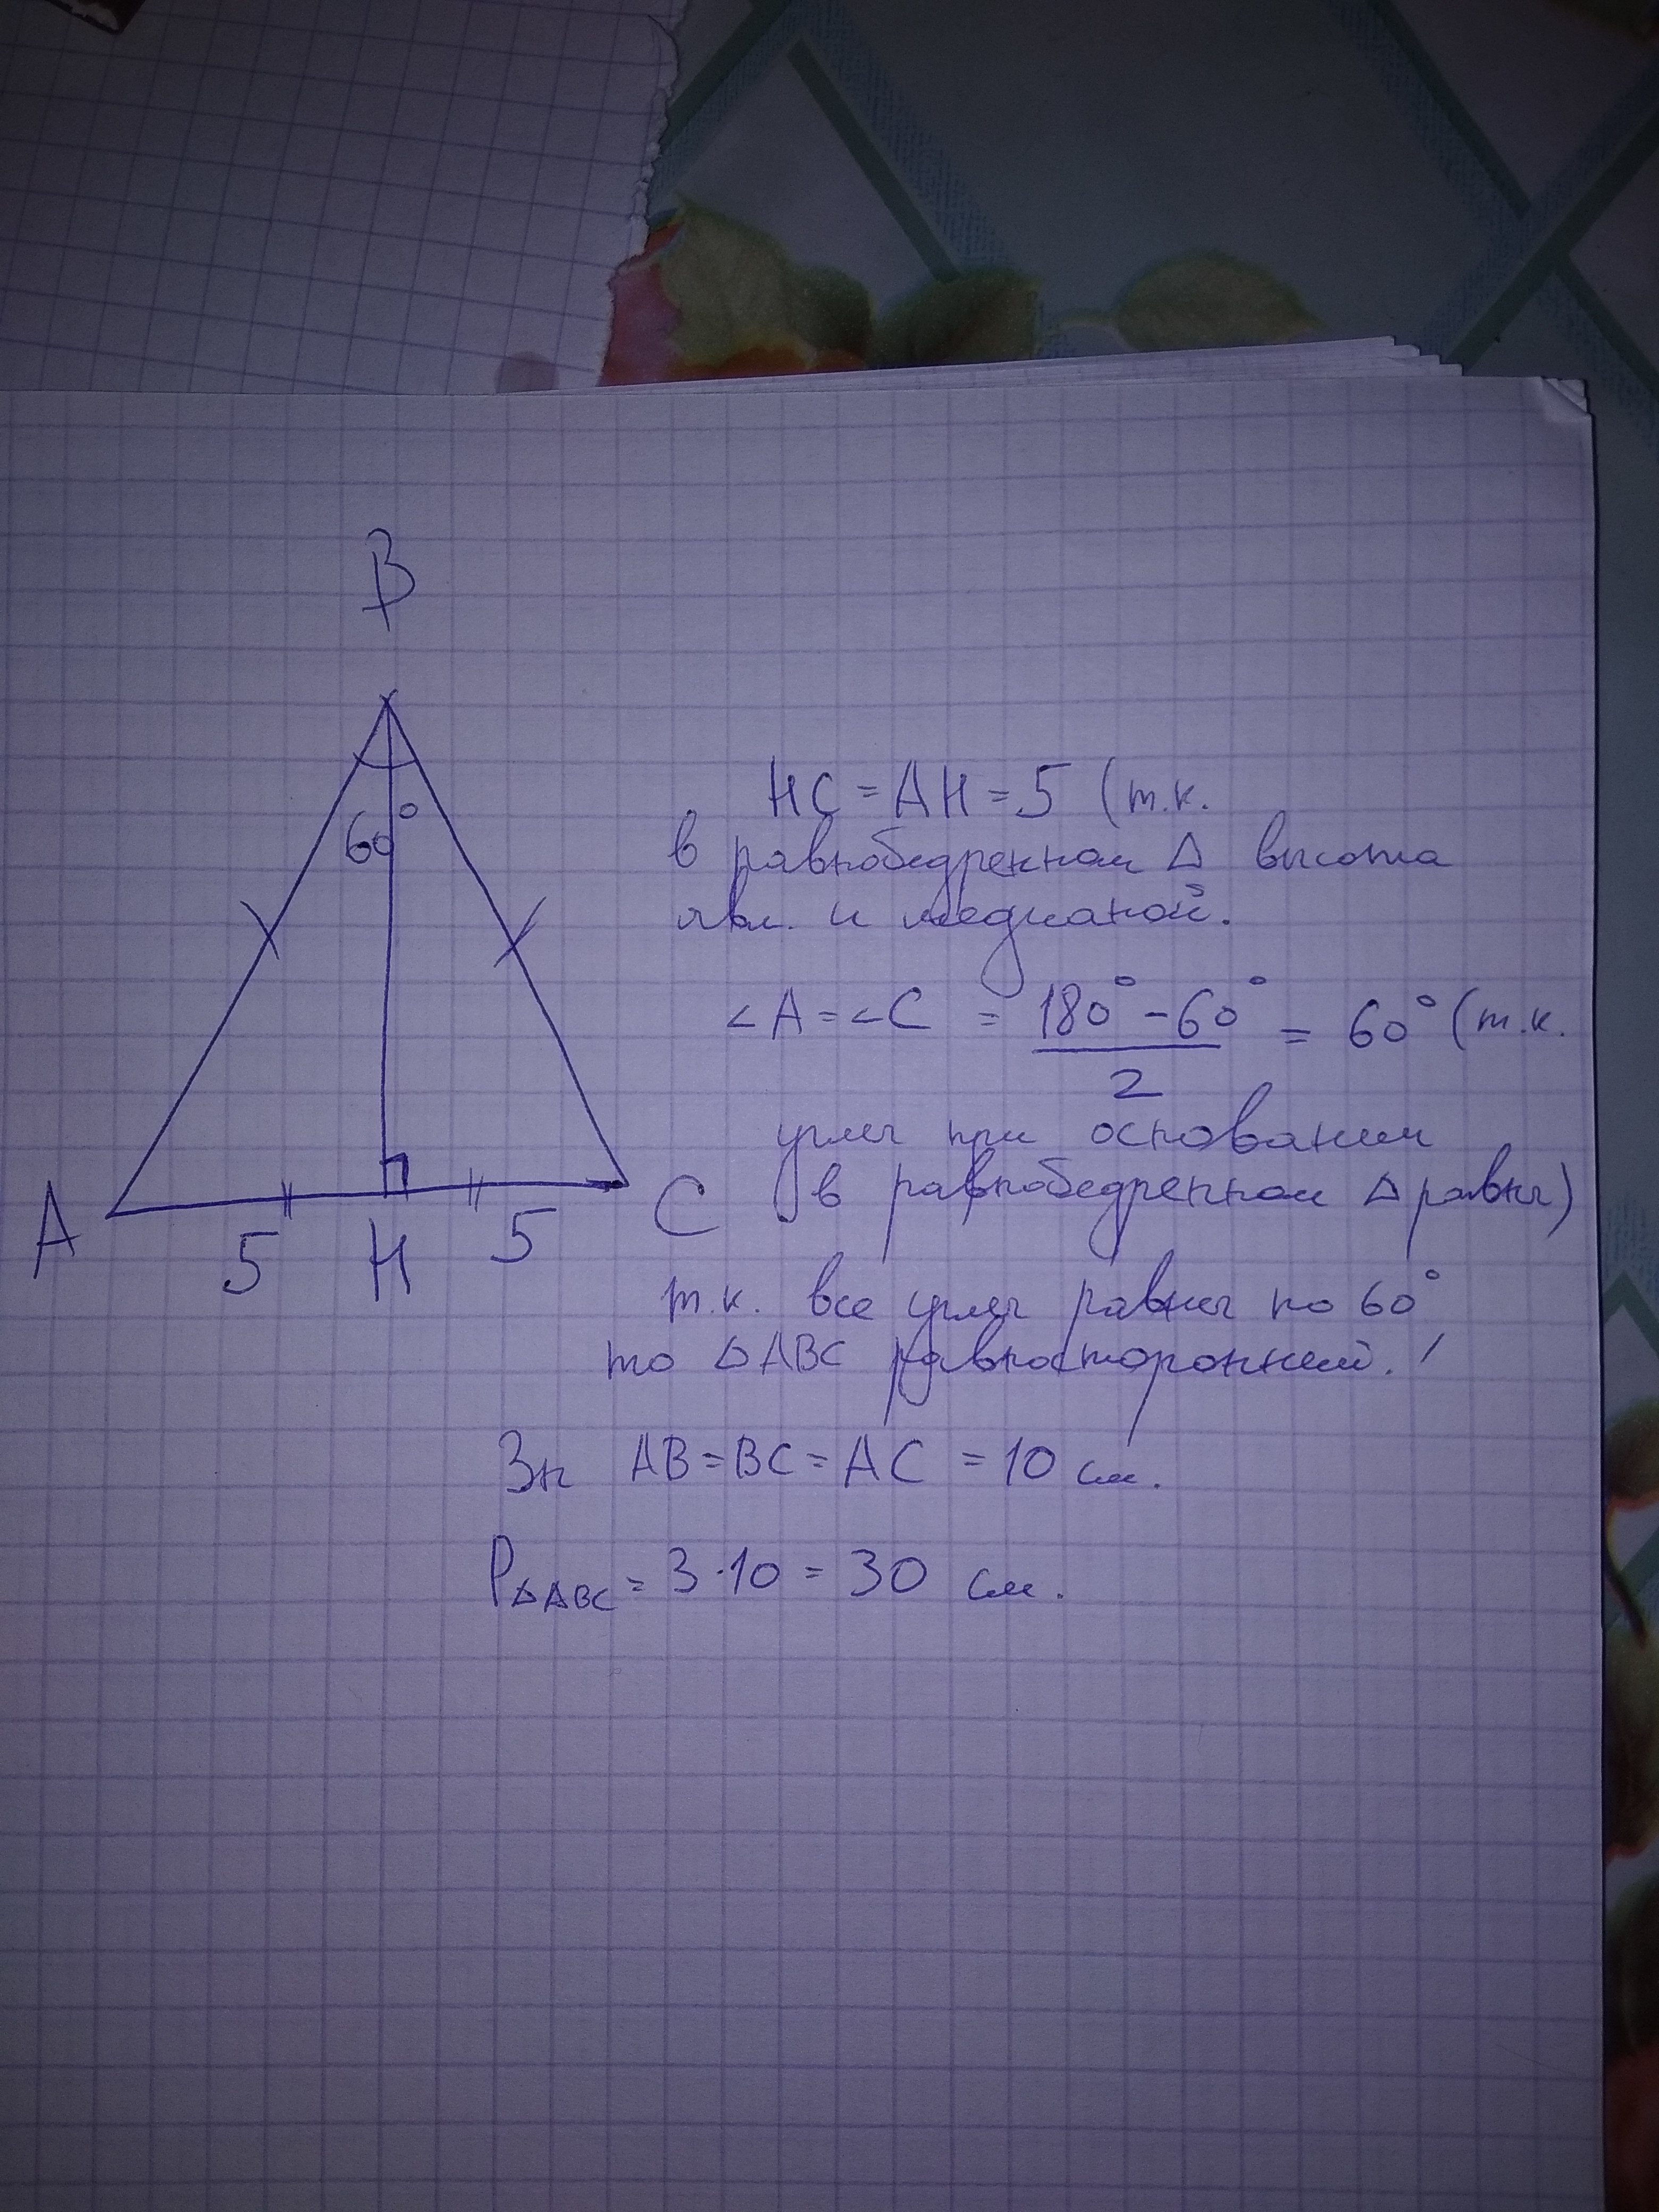 B
60°
A
5
H
5
C
HC = AH = 5 (т.к.
в равнобедренном △ высота
явл. и медианой.
∠A = ∠C = 180° - 60° / 2 = 60° (т.к.
углы при основании
в равнобедренном △ равны)
т.к. все углы равны по 60°
то △ABC равносторонний.
Зн AB = BC = AC = 10 см.
P△ABC = 3·10 = 30 см.